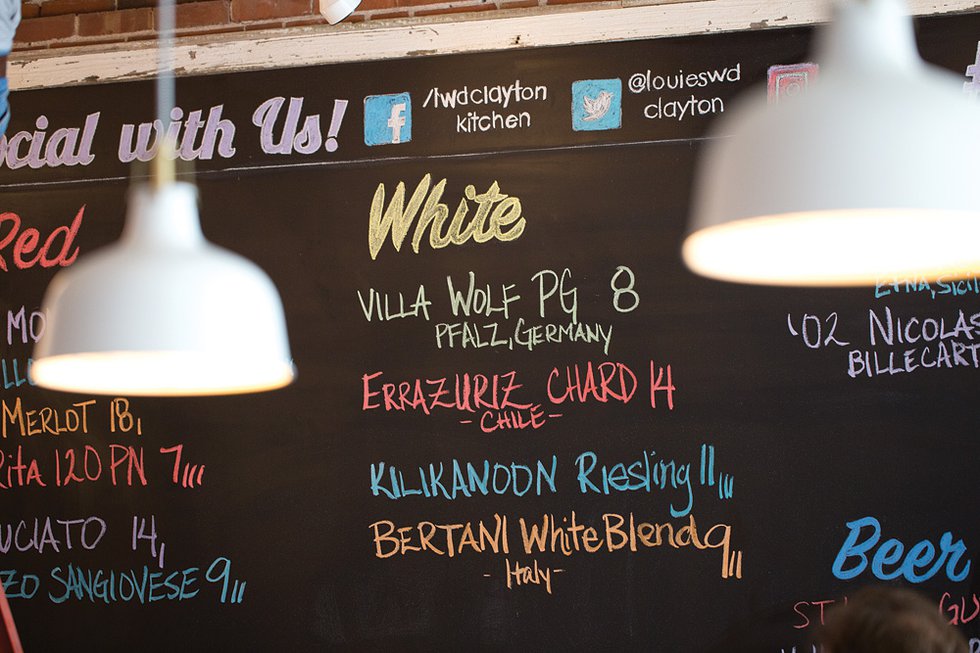 Social with Us!
/lwdclayton
kitchen
@louieswd
clayton
Red
MO
MERLOT 18,
RITA 120 PN 7,,,
UCIATO 14,
ZO SANGIOVESE 9,,
White
VILLA WOLF PG 8
PFALZ, GERMANY
ERRAZURIZ CHARD 14
- CHILE -
KILIKANOON Riesling 11,,,
BERTANI White Blend 9,,
- Italy -
ETNA, SICI
'02 NICOLAS
BILLECART
Beer
ST
GU